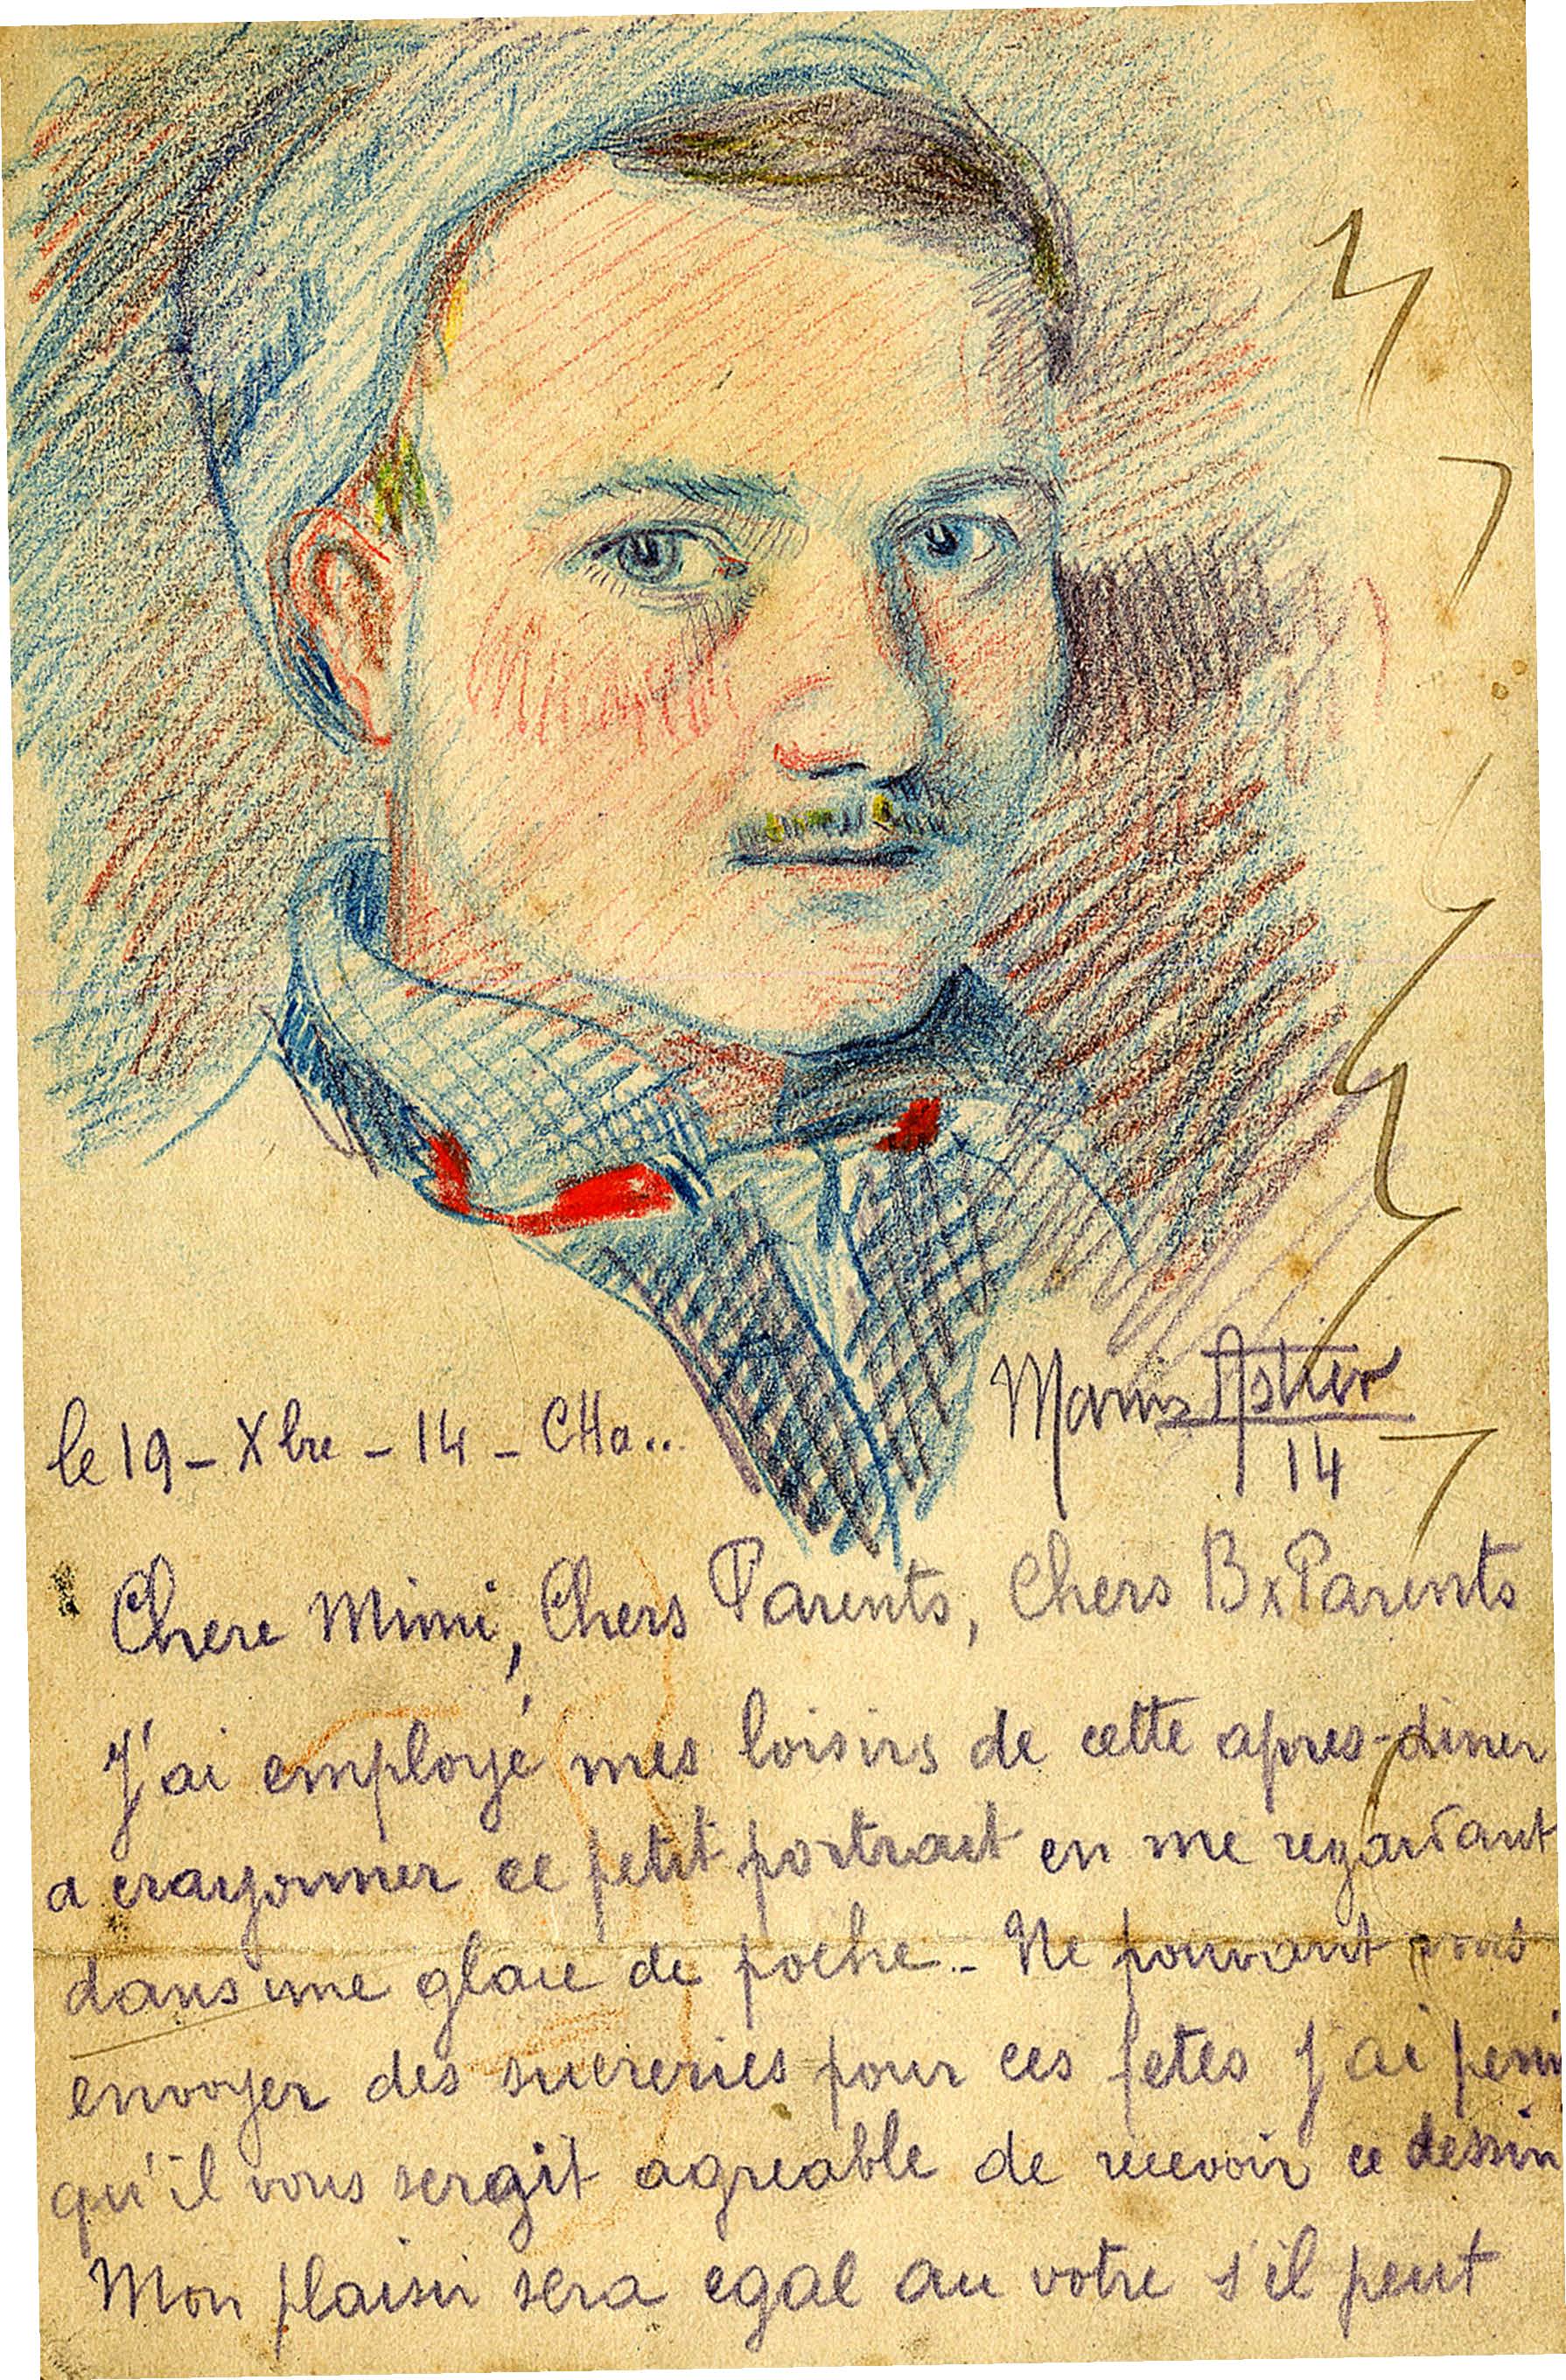 Marius Astier
14
le 19 - Xbre - 14 - CHa..
Chere Mimi, Chers Parents, Chers Bx Parents
J'ai employé mes loisirs de cette apres-diner
a crayonner ce petit portrait en me regardant
dans une glace de poche.- Ne pouvant vous
envoyer des sucreries pour ces fetes j'ai pens
qu'il vous serait agreable de recevoir ce dessin
Mon plaisir sera egal au votre s'il peut